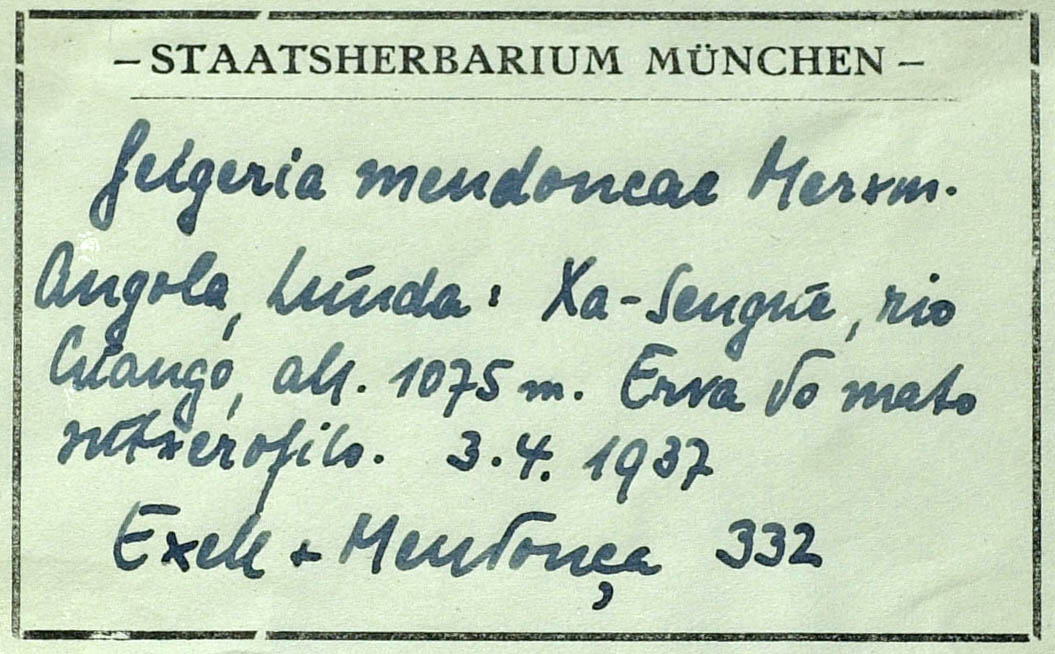 – STAATSHERBARIUM MÜNCHEN –
Geigeria mendoncae Merxm.
Angola, Lunda: Xa-Sengue, rio
Cuango, alt. 1075 m. Erva do mato
subxerofilo. 3.4. 1937
Exell + Mendonça 332